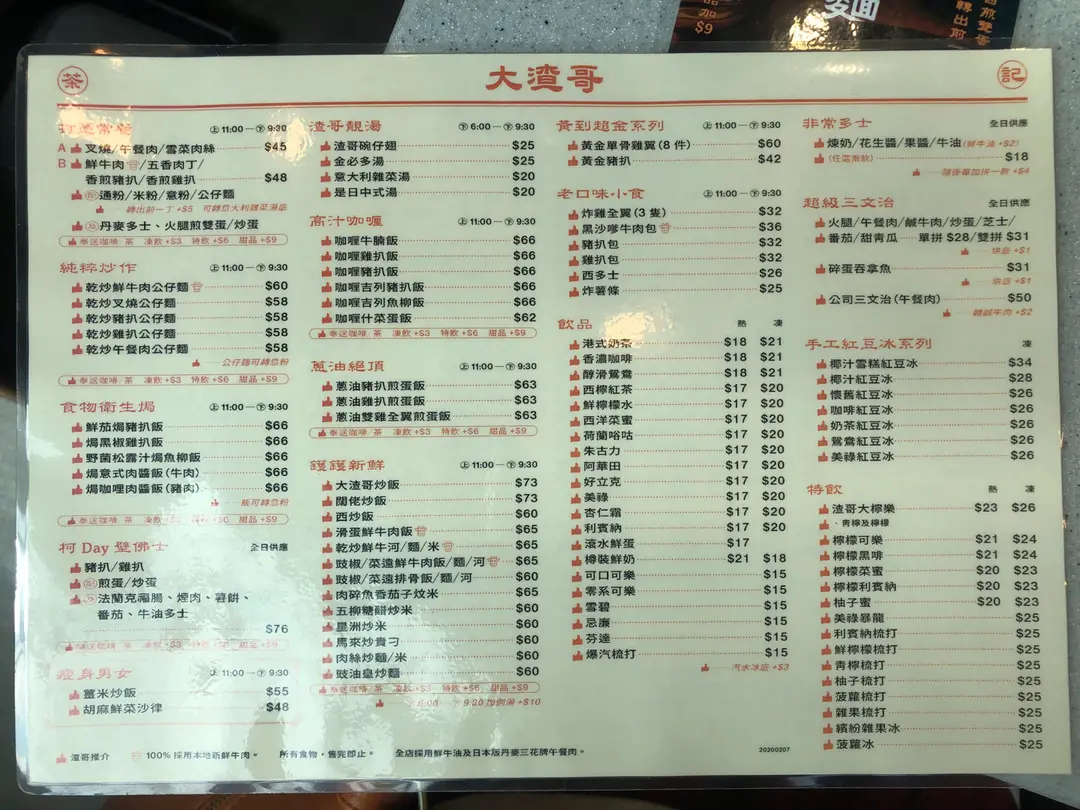 品加
$9
麥面
轉出前一
茶
大渣哥
記
常餐
上 11:00 — 下 9:30
A 叉燒/午餐肉/雪菜肉絲 $45
B 鮮牛肉/五香肉丁/
香煎豬扒/香煎雞扒 $48
配 通粉/米粉/意粉/公仔麵
轉出前一丁 +$5 可轉意大利雜菜湯底
丹麥多士、火腿煎雙蛋/炒蛋
奉送咖啡/茶 凍飲 +$3 特飲 +$6 甜品 +$9
純粹炒作 上 11:00 — 下 9:30
乾炒鮮牛肉公仔麵 $60
乾炒叉燒公仔麵 $58
乾炒豬扒公仔麵 $58
乾炒雞扒公仔麵 $58
乾炒午餐肉公仔麵 $58
公仔麵可轉意粉
奉送咖啡/茶 凍飲 +$3 特飲 +$6 甜品 +$9
食物衛生焗 上 11:00 — 下 9:30
鮮茄焗豬扒飯 $66
焗黑椒雞扒飯 $66
野菌松露汁焗魚柳飯 $66
焗意式肉醬飯(牛肉) $66
焗咖哩肉醬飯(豬肉) $66
飯可轉意粉
奉送咖啡/茶 凍飲 +$3 特飲 +$6 甜品 +$9
柯 Day 壁佛士 全日供應
豬扒/雞扒
配 煎蛋/炒蛋
法蘭克福腸、煙肉、薯餅、
番茄、牛油多士
$76
奉送咖啡/茶 凍飲 +$3 特飲 +$6 甜品 +$9
瘦身男女 上 11:00 — 下 9:30
薑米炒飯 $55
胡麻鮮菜沙律 $48
渣哥靚湯 下 6:00 — 下 9:30
渣哥碗仔翅 $25
金必多湯 $25
意大利雜菜湯 $20
是日中式湯 $20
高汁咖喱 上 11:00 — 下 9:30
咖喱牛腩飯 $66
咖喱雞扒飯 $66
咖喱豬扒飯 $66
咖喱吉列豬扒飯 $66
咖喱吉列魚柳飯 $66
咖喱什菜蛋飯 $62
奉送咖啡/茶 凍飲 +$3 特飲 +$6 甜品 +$9
蔥油絕頂 上 11:00 — 下 9:30
蔥油豬扒煎蛋飯 $63
蔥油雞扒煎蛋飯 $63
蔥油雙雞全翼煎蛋飯 $63
奉送咖啡/茶 凍飲 +$3 特飲 +$6 甜品 +$9
鑊鑊新鮮 上 11:00 — 下 9:30
大渣哥炒飯 $73
闊佬炒飯 $73
西炒飯 $60
滑蛋鮮牛肉飯 $65
乾炒鮮牛河/麵/米 $65
豉椒/菜遠鮮牛肉飯/麵/河 $65
豉椒/菜遠排骨飯/麵/河 $60
肉碎魚香茄子炆米 $65
五柳糖醋炒米 $60
星洲炒米 $60
馬來炒貴刁 $60
肉絲炒麵/米 $60
豉油皇炒麵 $60
奉送咖啡/茶 凍飲 +$3 特飲 +$6 甜品 +$9
下 6:00 — 下 9:30 加例湯 +$10
黃到超金系列 上 11:00 — 下 9:30
黃金單骨雞翼(8 件) $60
黃金豬扒 $42
老口味小食 上 11:00 — 下 9:30
炸雞全翼(3 隻) $32
黑沙嗲牛肉包 $36
豬扒包 $32
雞扒包 $32
西多士 $26
炸薯條 $25
飲品 熱 凍
港式奶茶 $18 $21
香濃咖啡 $18 $21
醇滑鴛鴦 $18 $21
西檸紅茶 $17 $20
鮮檸檬水 $17 $20
西洋菜蜜 $17 $20
荷蘭唂咕 $17 $20
朱古力 $17 $20
阿華田 $17 $20
好立克 $17 $20
美祿 $17 $20
杏仁霜 $17 $20
利賓納 $17 $20
滾水鮮蛋 $17
樽裝鮮奶 $21 $18
可口可樂 $15
零系可樂 $15
雪碧 $15
忌廉 $15
芬達 $15
爆汽梳打 $15
汽水冰底 +$3
非常多士 全日供應
煉奶/花生醬/果醬/牛油(鮮牛油 +$2)
(任選兩款) $18
隨後每加拼一款 +$4
超級三文治 全日供應
火腿/午餐肉/鹹牛肉/炒蛋/芝士/
番茄/甜青瓜 單拼 $28/雙拼 $31
烘底 +$1
碎蛋吞拿魚 $31
烘底 +$1
公司三文治(午餐肉) $50
轉鹹牛肉 +$2
手工紅豆冰系列 凍
椰汁雪糕紅豆冰 $34
椰汁紅豆冰 $28
懷舊紅豆冰 $26
咖啡紅豆冰 $26
奶茶紅豆冰 $26
鴛鴦紅豆冰 $26
美祿紅豆冰 $26
特飲 熱 凍
渣哥大檸樂 $23 $26
- 青檸及檸檬
檸檬可樂 $21 $24
檸檬黑啡 $21 $24
檸檬菜蜜 $20 $23
檸檬利賓納 $20 $23
柚子蜜 $20 $23
美祿暴龍 $25
利賓納梳打 $25
鮮檸檬梳打 $25
青檸梳打 $25
柚子梳打 $25
菠蘿梳打 $25
雜果梳打 $25
繽紛雜果冰 $25
菠蘿冰 $25
渣哥推介 100% 採用本地新鮮牛肉。 所有食物，售完即止。 全店採用鮮牛油及日本版丹麥三花牌午餐肉。 20200207